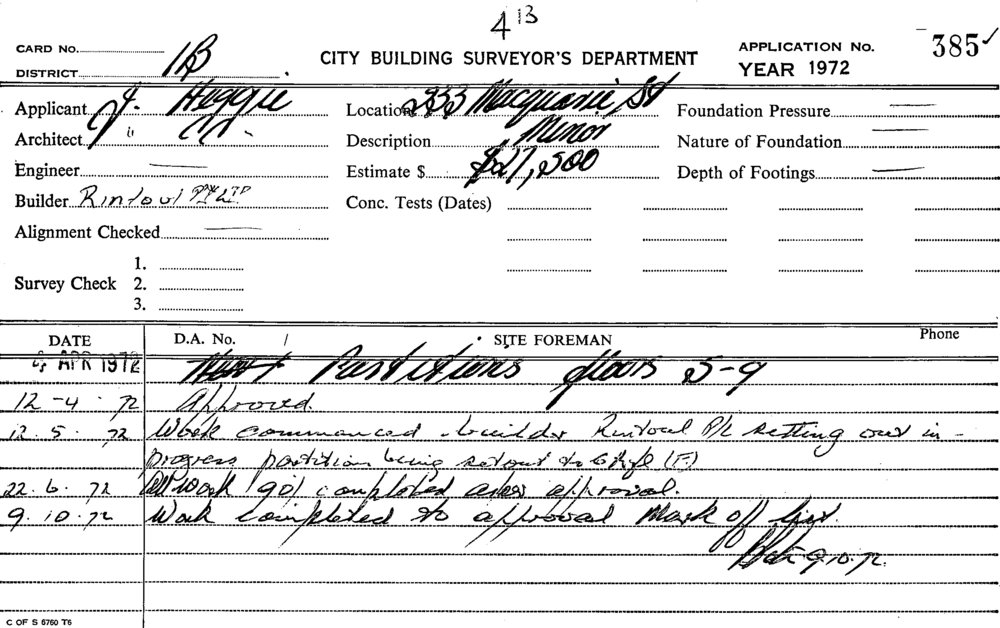 4 13
CARD No. APPLICATION No. 385 ✓
DISTRICT 1B CITY BUILDING SURVEYOR'S DEPARTMENT YEAR 1972
Applicant J. Heggie Location 233 Macquarie St Foundation Pressure —
Architect " Description Minor Nature of Foundation —
Engineer — Estimate $ $27,500 Depth of Footings —
Builder Rintoul Pty Ltd Conc. Tests (Dates)
Alignment Checked —
1.
Survey Check 2.
3.
DATE D.A. No. / SITE FOREMAN Phone
4 APR 1972 Partitions floors 5-9
12-4-72 Approved.
12.5.72 Work commenced builder Rintoul P/L setting out in-
progress partition being setout to
22.6.72 All work 90% completed as approval.
9.10.72 Work completed to approval Mark off list.
9.10.72.
C OF S 6760 T6